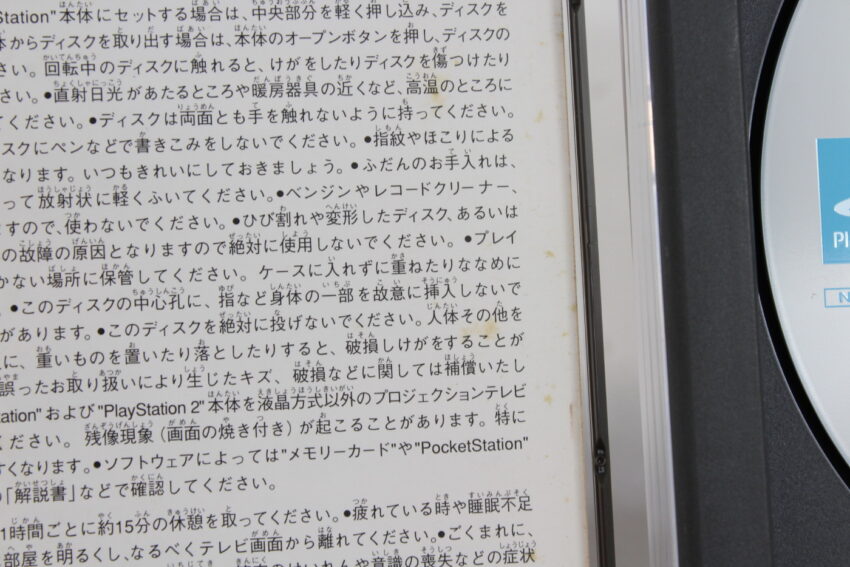 Station"本体にセットする場合は、中央部分を軽く押し込み、ディスクを
からディスクを取り出す場合は、本体のオープンボタンを押し、ディスクの
さい。回転中のディスクに触れると、けがをしたりディスクを傷つけたり
さい。●直射日光があたるところや暖房器具の近くなど、高温のところに
てください。●ディスクは両面とも手を触れないように持ってください。
スクにペンなどで書きこみをしないでください。●指紋やほこりによる
なります。いつもきれいにしておきましょう。●ふだんのお手入れは、
って放射状に軽くふいてください。●ベンジンやレコードクリーナー、
ますので、使わないでください。●ひび割れや変形したディスク、あるいは
の故障の原因となりますので絶対に使用しないでください。●プレイ
かない場所に保管してください。ケースに入れずに重ねたりななめに
●このディスクの中心孔に、指など身体の一部を故意に挿入しないで
があります。●このディスクを絶対に投げないでください。人体その他を
に、重いものを置いたり落としたりすると、破損しけがをすることが
誤ったお取り扱いにより生じたキズ、破損などに関しては補償いたし
tation"および"PlayStation 2"本体を液晶方式以外のプロジェクションテレビ
ください。残像現象(画面の焼き付き)が起こることがあります。特に
すくなります。●ソフトウェアによっては"メモリーカード"や"PocketStation"
の「解説書」などで確認してください。
1時間ごとに約15分の休憩を取ってください。●疲れている時や睡眠不足
部屋を明るくし、なるべくテレビ画面から離れてください。●ごくまれに、
のけいれんや意識の喪失などの症状
Pl
N